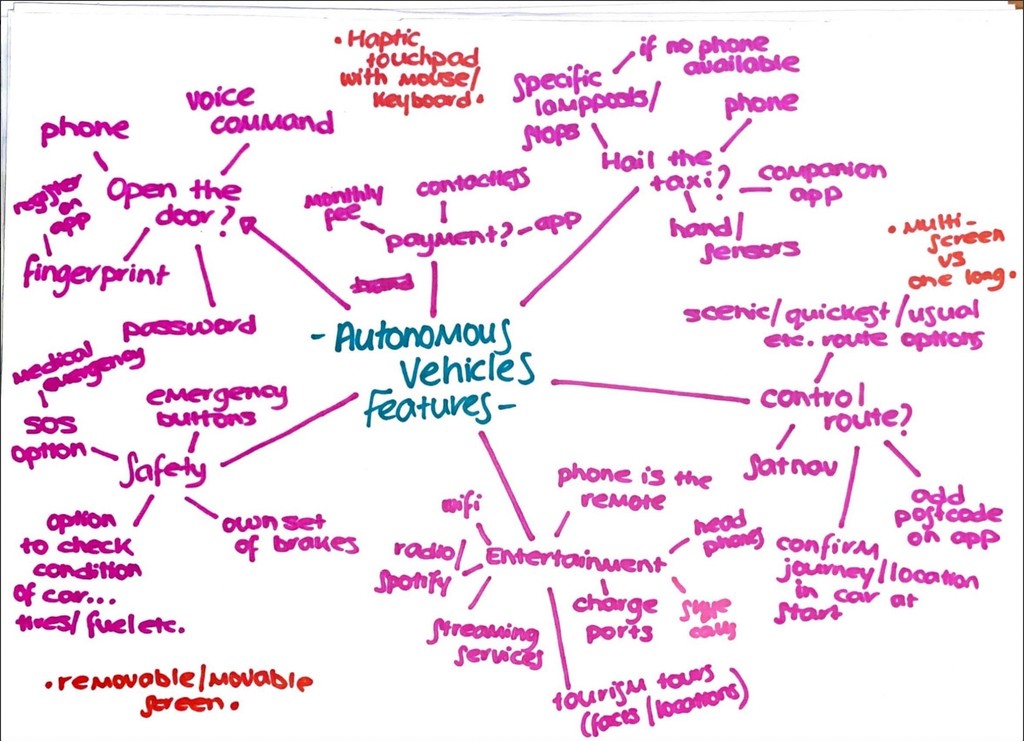 • Haptic
touchpad
with mouse/
keyboard.
voice
command
phone
Open the
door?
register
on
app
fingerprint
password
monthly
fee
contactless
payment?
app
if no phone
available
specific
lampposts/
stops
phone
Hail the
taxi?
companion
app
hand/
sensors
• multi-
screen
vs
one long.
- Autonomous
Vehicles
features -
scenic/quickest/usual
etc. route options
control
route?
satnav
add
postcode
on app
confirm
journey/location
in car at
start
medical
emergency
SOS
option
emergency
buttons
Safety
option
to check
condition
of car...
tires/fuel etc.
own set
of brakes
phone is the
remote
wifi
head
phones
radio/
spotify
Entertainment
charge
ports
calls
streaming
services
tourism tours
(facts/locations)
• removable/movable
screen.